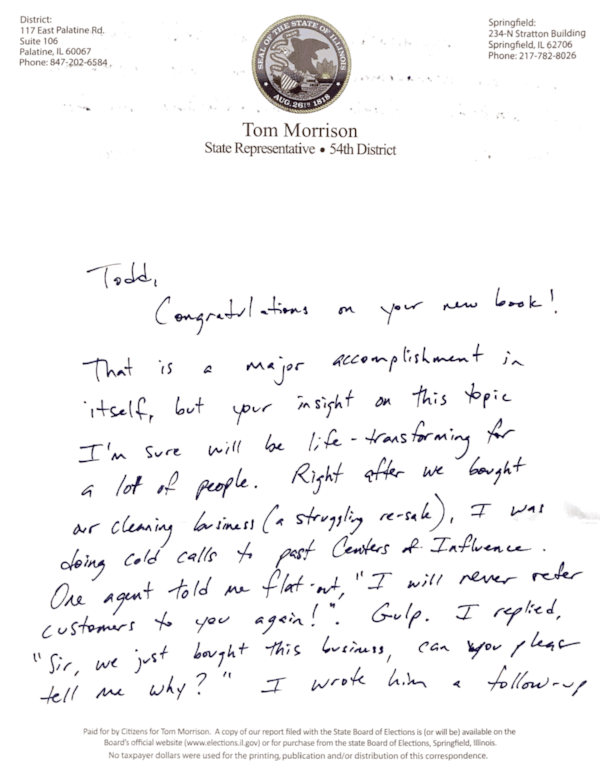 District:
117 East Palatine Rd.
Suite 106
Palatine, IL 60067
Phone: 847-202-6584
Springfield:
234-N Stratton Building
Springfield, IL 62706
Phone: 217-782-8026
SEAL OF THE STATE OF ILLINOIS
AUG. 26TH 1818
Tom Morrison
State Representative • 54th District
Todd,
Congratulations on your new book!
That is a major accomplishment in
itself, but your insight on this topic
I'm sure will be life-transforming for
a lot of people. Right after we bought
our cleaning business (a struggling re-sale), I was
doing cold calls to past Centers of Influence.
One agent told me flat-out, "I will never refer
customers to you again!". Gulp. I replied,
"Sir, we just bought this business, can you please
tell me why?" I wrote him a follow-up
Paid for by Citizens for Tom Morrison. A copy of our report filed with the State Board of Elections is (or will be) available on the
Board's official website (www.elections.il.gov) or for purchase from the state Board of Elections, Springfield, Illinois.
No taxpayer dollars were used for the printing, publication and/or distribution of this correspondence.